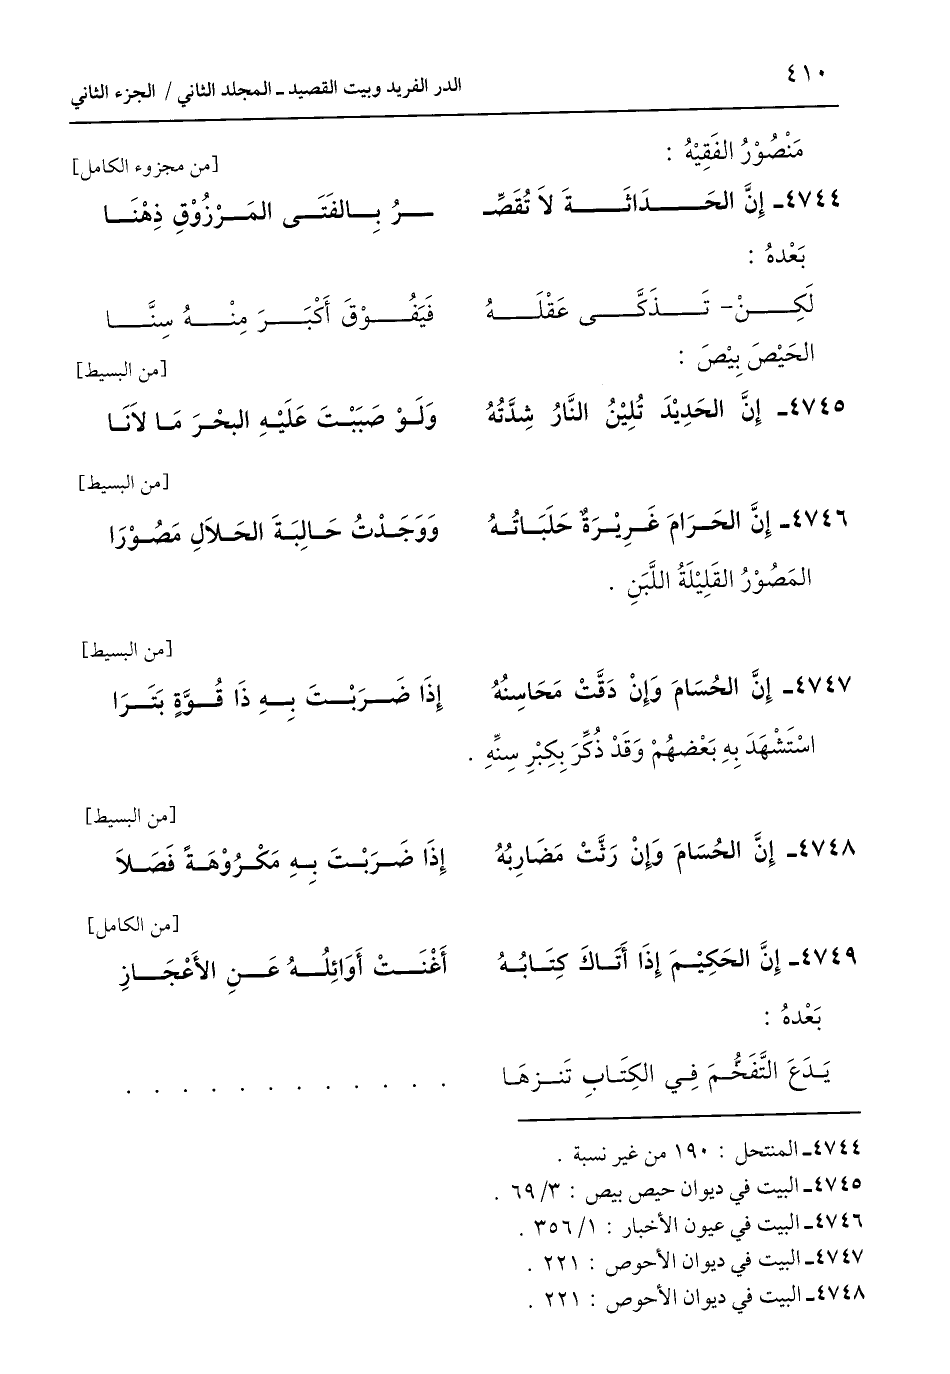 ٤١٠
الدر الفريد وبيت القصيد ـ المجلد الثاني / الجزء الثاني
مَنْصُوْرُ الفَقِيْهُ :
[من مجزوء الكامل]
٤٧٤٤ـ إِنَّ الحَـــــدَاثَـــــةَ لاَ تُقَصِّـ ـــرُ بِـالفَتَـى المَـرْزُوْقِ ذِهْنَـا
بَعْدهُ :
لَكِـــنْ- تَـــذَكَّـــى عَقْلَـــهُ فَيَفُـــوْقَ أَكْبَـــرَ مِنْـــهُ سِنَّـــا
الحَيْصَ بِيْصَ :
[من البسيط]
٤٧٤٥ـ إِنَّ الحَدِيْدَ تُلِيْنُ النَّارُ شِدَّتُهُ وَلَـوْ صَبَبْـتَ عَلَيْـهِ البحْـرَ مَـا لاَنَـا
[من البسيط]
٤٧٤٦ـ إِنَّ الحَـرَامَ غَـرِيْـرَةٌ حَلَبَاتُـهُ وَوَجَـدْتُ حَـالِبَـةَ الحَـلاَلِ مَصُـوْرَا
المَصُوْرُ القَلِيْلَةُ اللَّبَنِ .
[من البسيط]
٤٧٤٧ـ إِنَّ الحُسَامَ وَإِنْ دَقَّتْ مَحَاسِنُهُ إِذَا ضَـرَبْـتَ بِـهِ ذَا قُـوَّةٍ بَتَـرَا
اسْتَشْهَدَ بِهِ بَعْضهُمْ وَقَدْ ذُكِّرَ بِكِبْرِ سِنِّهِ .
[من البسيط]
٤٧٤٨ـ إِنَّ الحُسَامَ وَإِنْ رَثَّتْ مَضَارِبُهُ إِذَا ضَـرَبْـتَ بِـهِ مَكْـرُوْهَـةً فَصَـلاَ
[من الكامل]
٤٧٤٩ـ إِنَّ الحَكِيْـمَ إِذَا أَتَـاكَ كِتَـابُـهُ أَغْنَـتْ أَوَائِلُـهُ عَـنِ الأَعْجَـازِ
بَعْدهُ :
يَـدَعَ التَّفَخُّـمَ فِـي الكِتَـابِ تَنـزهَـا . . . . . . . . . . . .
٤٧٤٤ـ المنتحل : ١٩٠ من غير نسبة .
٤٧٤٥ـ البيت في ديوان حيص بيص : ٣/ ٦٩ .
٤٧٤٦ـ البيت في عيون الأخبار : ١/ ٣٥٦ .
٤٧٤٧ـ البيت في ديوان الأحوص : ٢٢١ .
٤٧٤٨ـ البيت في ديوان الأحوص : ٢٢١ .